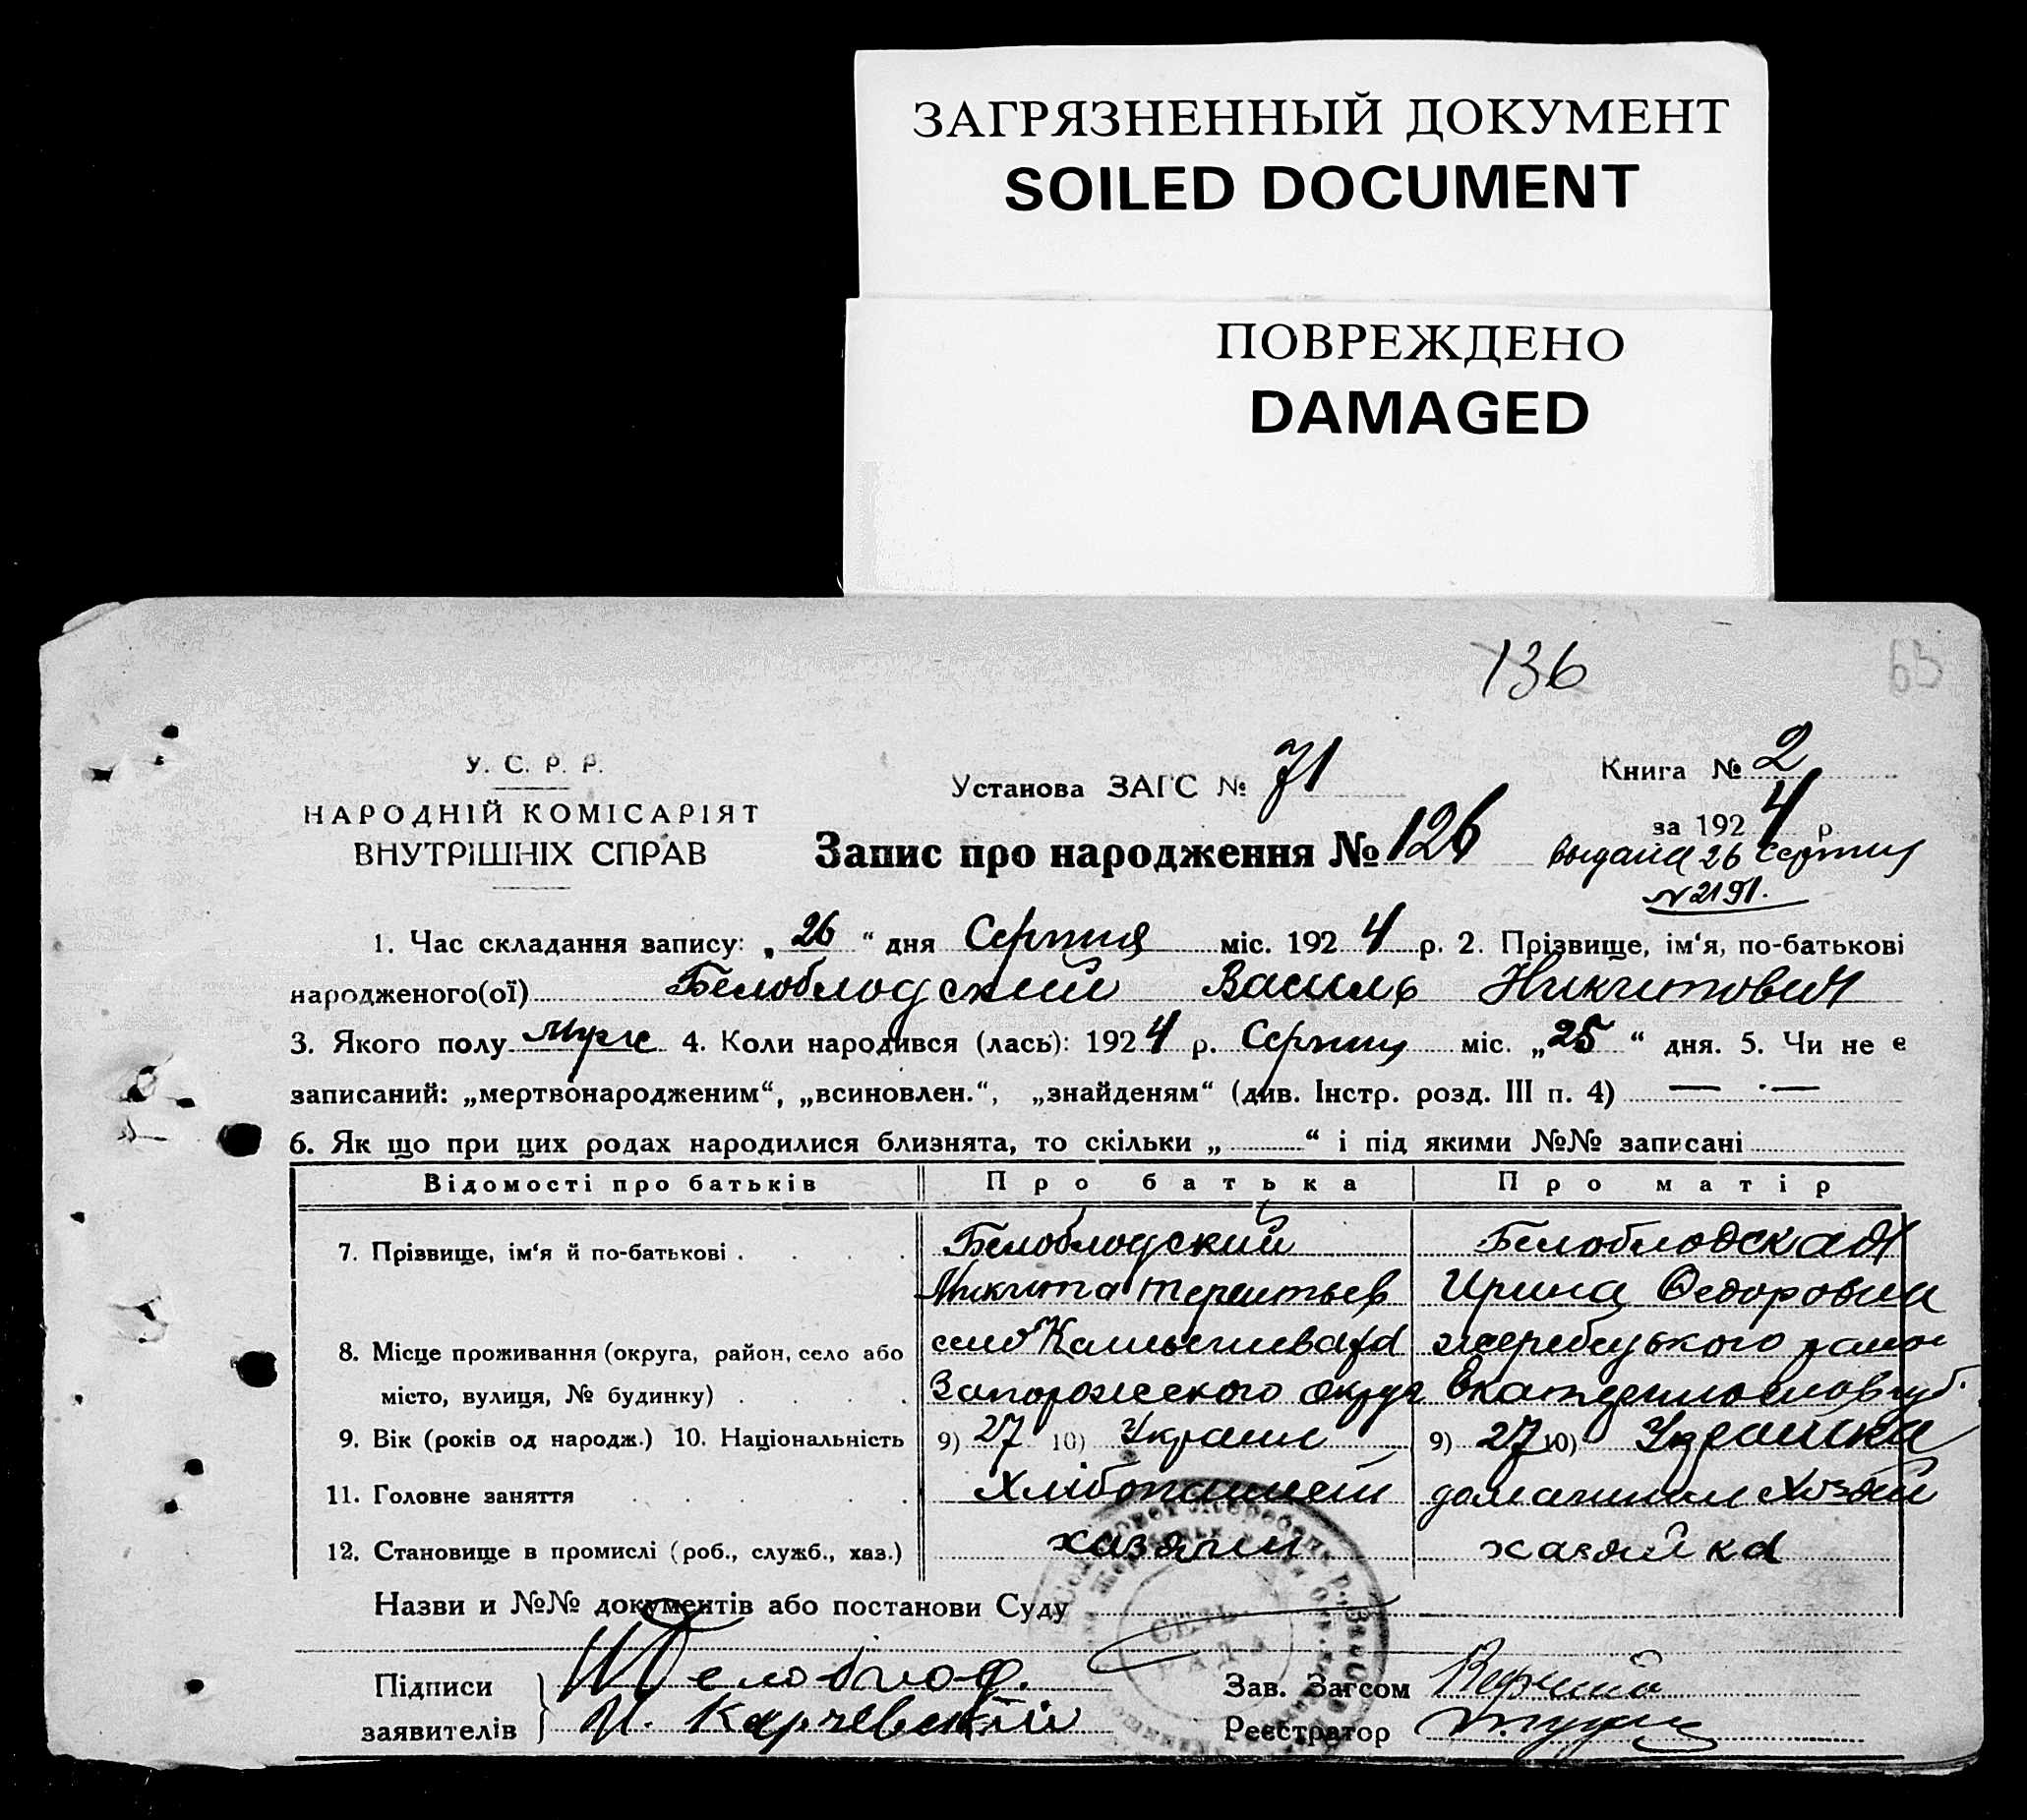 ЗАГРЯЗНЕННЫЙ ДОКУМЕНТ
SOILED DOCUMENT
ПОВРЕЖДЕНО
DAMAGED
136
63
У. С. Р. Р.
НАРОДНІЙ КОМІСАРІЯТ
ВНУТРІШНІХ СПРАВ
Установа ЗАГС № 71
Книга № 2
за 1924 р.
Запис про народження № 126
выдана 26 Серпня
N 2191.
1. Час складання запису: „ 26 “ дня Серпня міс. 1924 р. 2. Прізвище, ім‘я, по-батькові
народженого(ої) Белоблодский Василь Никитович
3. Якого полу муж 4. Коли народився (лась): 1924 р. Серпня міс. „25“ дня. 5. Чи не є
записаний: „мертвонародженим“, „всиновлен.“, „знайденям“ (див. Інстр. розд. III п. 4) — —
6. Як що при цих родах народилися близнята, то скільки „ “ і під якими №№ записані
Відомості про батьків Про батька Про матір
7. Прізвище, ім‘я й по-батькові Белоблодский Белоблодская
Никита Терентьев Ирина Федоровна
8. Місце проживання (округа, район, село або село Камышеваха жеребецького району
місто, вулиця, № будинку) Запорожского округа Екатеринославгуб.
9. Вік (років од народж.) 10. Національність 9) 27 10) Украин 9) 27 10) Украинка
11. Головне заняття Хлібопашест домашнам Хозяй
12. Становище в промислі (роб., служб., хаз.) хазяин хазяйка
Назви и №№ документів або постанови Суду
Підписи Белоблод.
заявителів И. Карчевский
СЕЛЬ.
РАДА
Зав. Загсом
Реєстратор